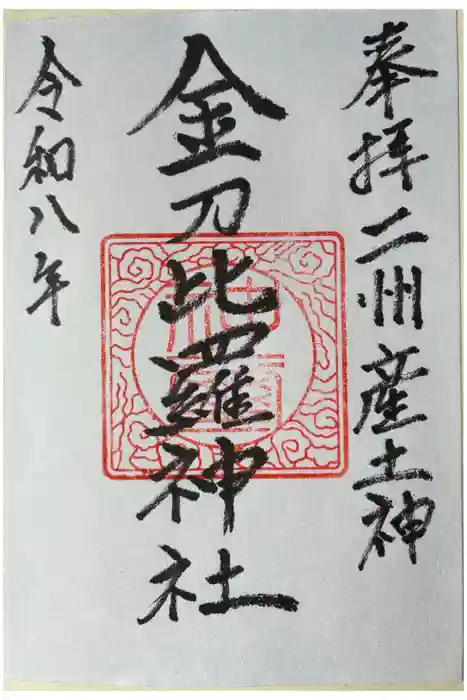 奉拝二州産土神
金刀比羅神社
令和八年
神璽